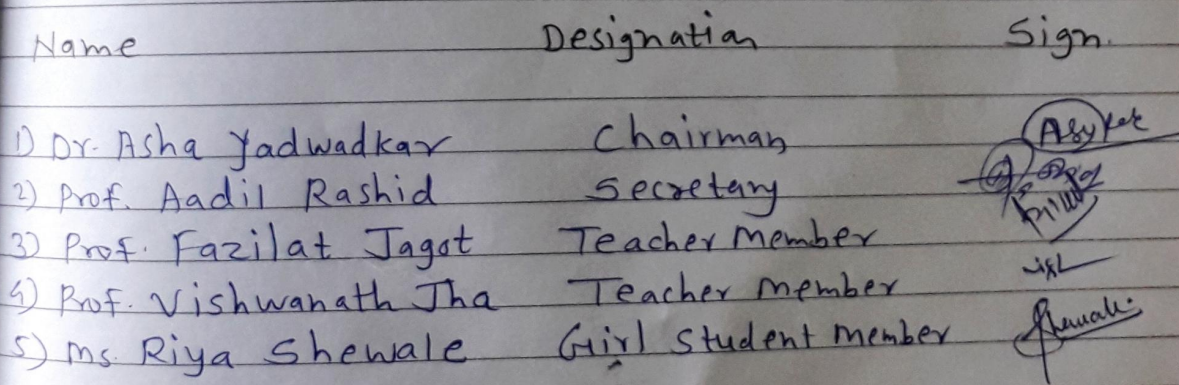 Name Designation Sign.
1) Dr. Asha Yadwadkar Chairman
2) Prof. Aadil Rashid Secretary
3) Prof. Fazilat Jagot Teacher Member
4) Prof. Vishwanath Jha Teacher Member
5) Ms. Riya Shewale Girl Student Member